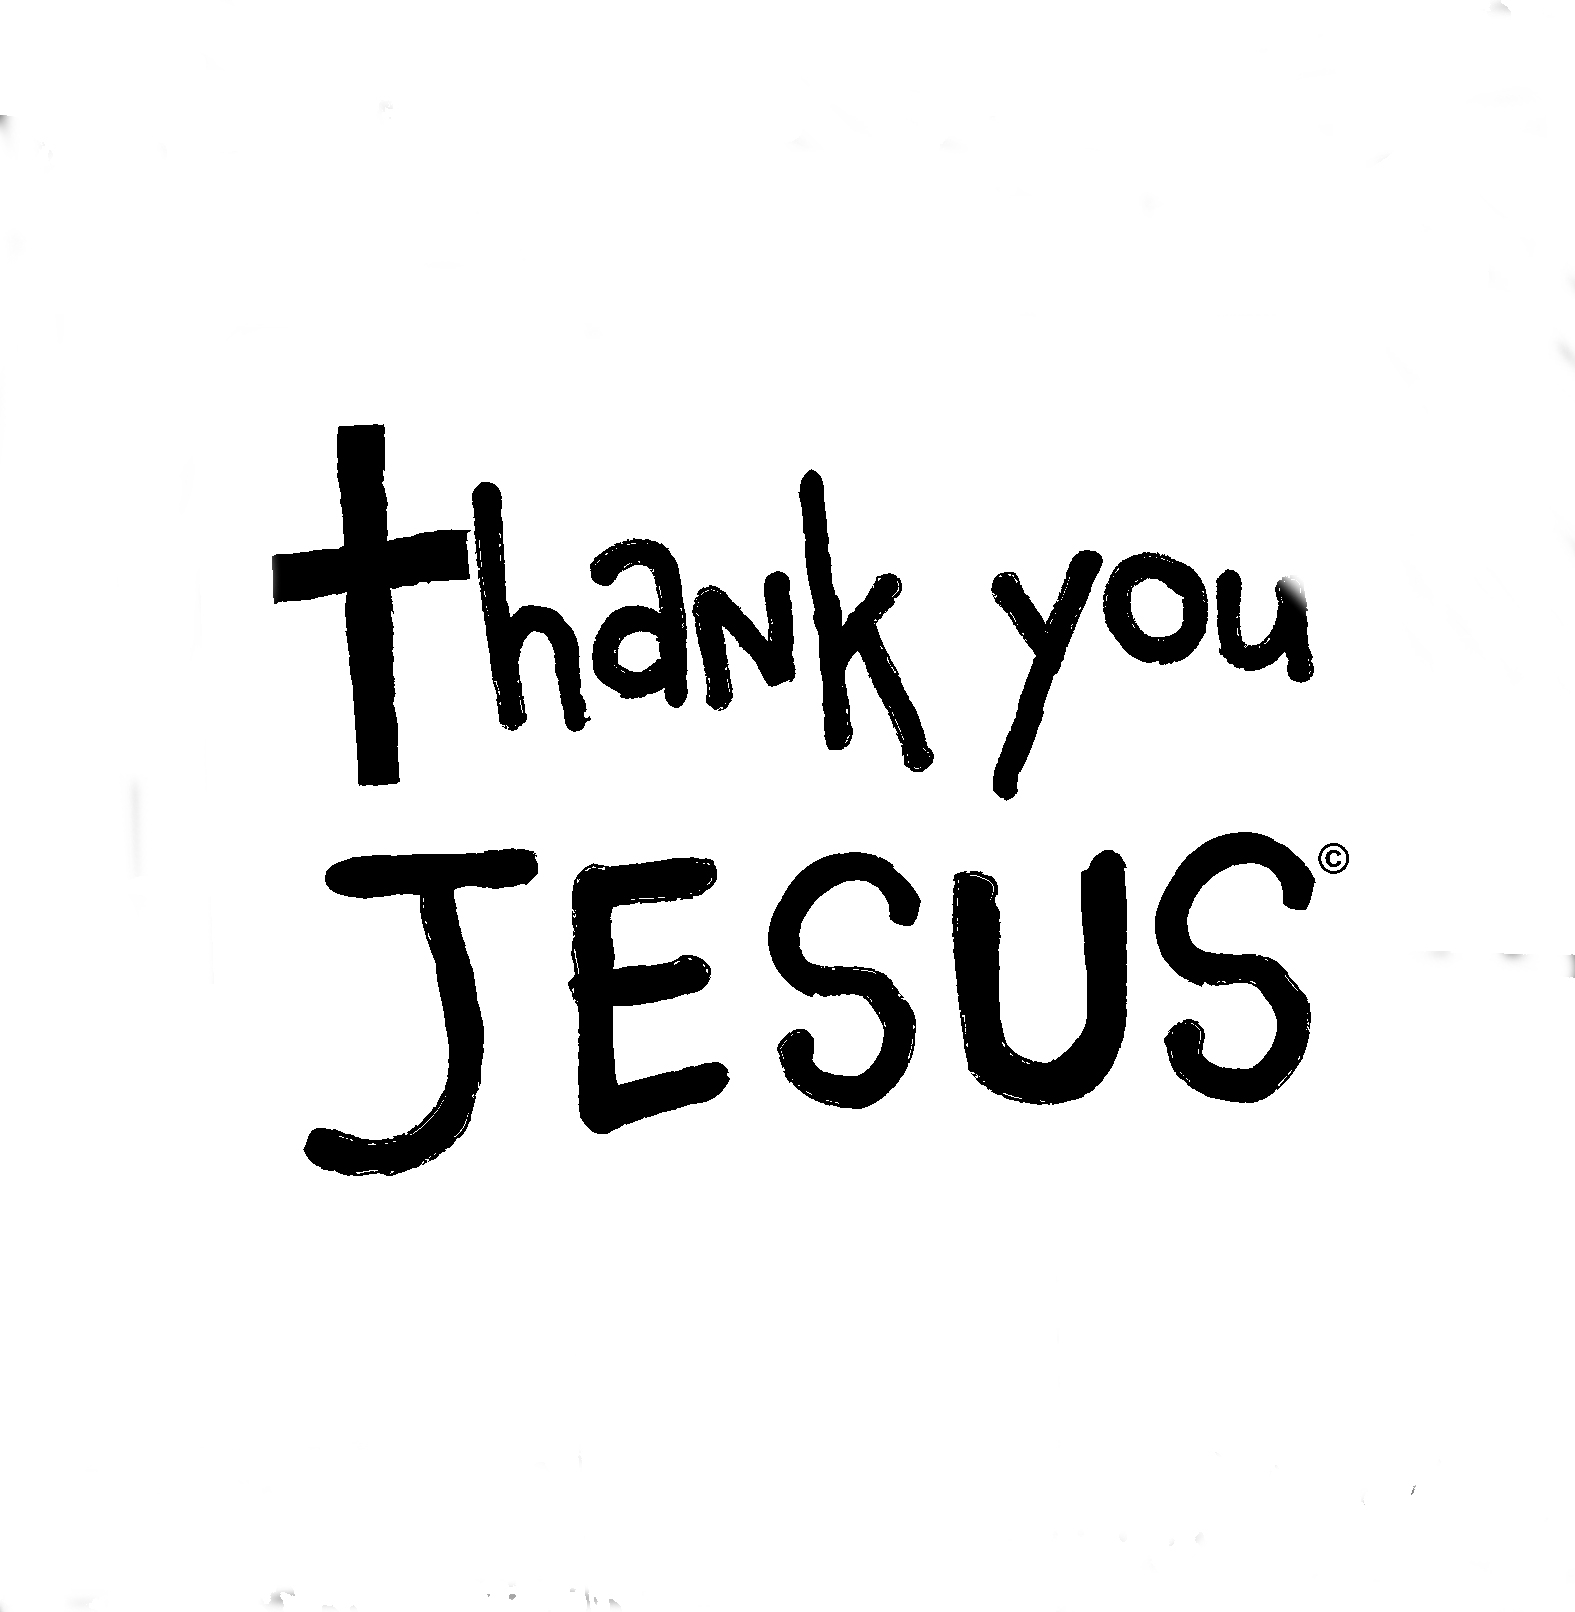 thank you
JESUS©